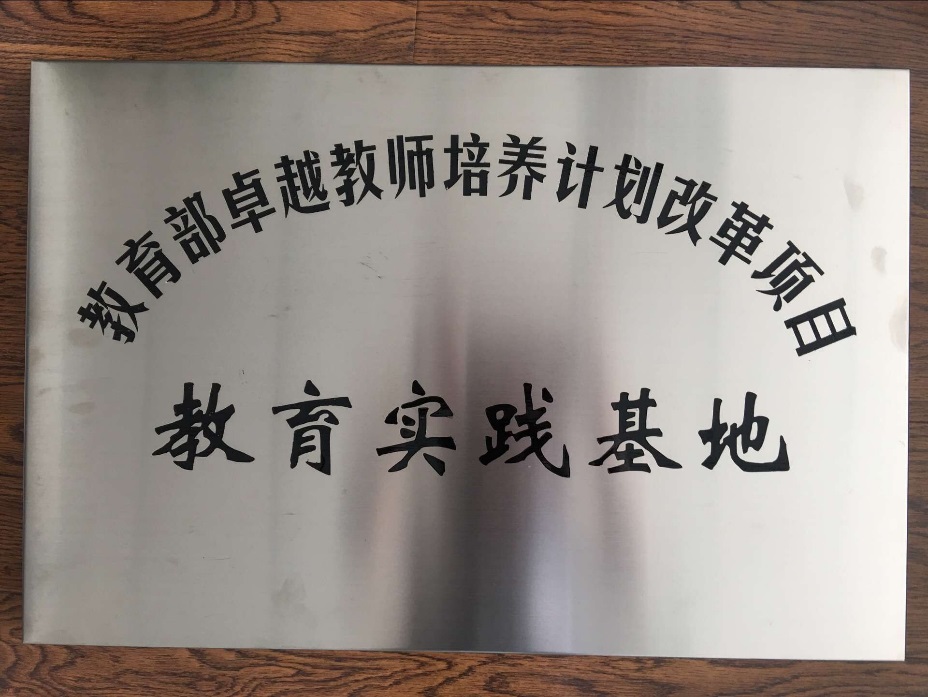 教育部卓越教师培养计划改革项目
教育实践基地